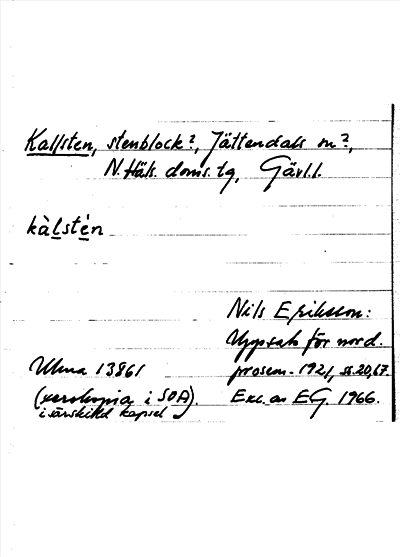 Kallsten, stenblock?, Jättendals sn?,
N. Häls. doms. tg, Gävl.l.
kàlstén
Nils Eriksson:
Uppsats för nord.
Ulma 13861 prosem. 1921, s. 20, 67.
(xerokopia i SOA). Exc. av EG. 1966.
i särskild kapsel